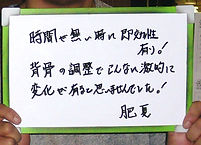 時間が無い時に即効性
有り!
背骨の調整でこんない激的に
変化が有ると思いませんでした!
肥夏